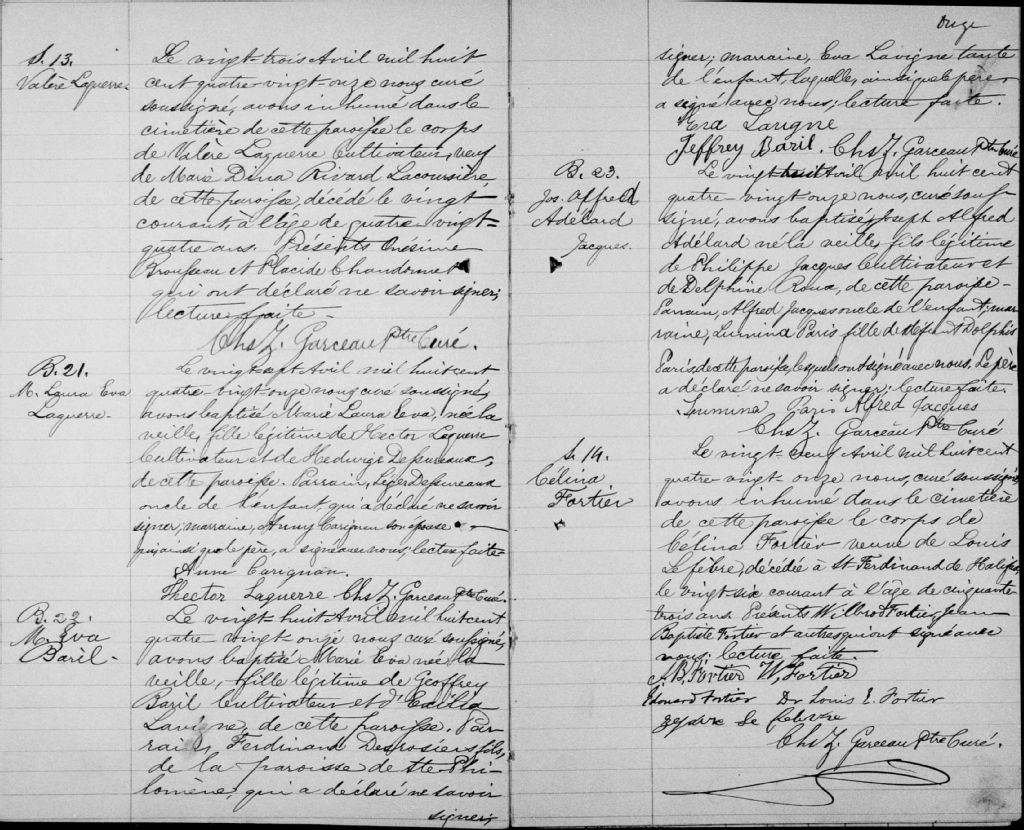 S. 13.
Valère Laguerre
Le vingt-trois Avril mil huit
cent quatre-vingt-onze nous curé
soussigné, avons inhumé dans le
cimetière de cette paroisse le corps
de Valère Laguerre Cultivateur, veuf
de Marie Dina Rivard Lacoursière
de cette paroisse, décédé le vingt
courant, à l'âge de quatre-vingt-
quatre ans. Présents Onésime
Brousseau et Placide Chandonnet
qui ont déclaré ne savoir signer;
lecture faite -
Chs Z. Garceau Ptre Curé.
B. 21.
M. Laura Eva
Laguerre -
Le vingt-sept Avril mil huit cent
quatre-vingt-onze nous curé soussigné,
avons baptisé Marie Laura Eva, née la
veille, fille légitime de Hector Laguerre
Cultivateur et de Hedwige Depureaux,
de cette paroisse. Parrain, Léger Depureaux
oncle de l'enfant, qui a déclaré ne savoir
signer, marraine, Anny Carignan son épouse
qui ainsi que le père, a signé avec nous, lecture faite
Anne Carignan.
Hector Laguerre Chs Z. Garceau Ptre Curé
B. 22.
M. Eva
Baril -
Le vingt-huit Avril mil huit cent
quatre-vingt-onze nous curé soussigné,
avons baptisé Marie Eva née la
veille, fille légitime de Geoffrey
Baril Cultivateur et d'Exilia
Lavigne, de cette paroisse. Par-
rain, Ferdinand Desrosiers fils,
de la paroisse de Ste Phi-
lomène, qui a déclaré ne savoir
signer;
Onze
signer; marraine, Eva Lavigne tante
de l'enfant, laquelle, ainsi que le père
a signé avec nous; lecture faite.
Eva Lavigne
Jeffrey Baril. Chs Z. Garceau Ptre Curé
B. 23.
Jos. Alfred
Adélard
Jacques.
Le vingt huit Avril mil huit cent
quatre-vingt-onze nous, curé sous-
signé, avons baptisé Joseph Alfred
Adélard né la veille, fils légitime
de Philippe Jacques Cultivateur et
de Delphine Roux, de cette paroisse -
Parrain, Alfred Jacques oncle de l'enfant; mar-
raine, Lumina Paris fille de défunt Dolphis
Paris de cette paroisse, lesquels ont signé avec nous. Le père
a déclaré ne savoir signer; lecture faite.
Lumina Paris Alfred Jacques
Chs Z. Garceau Ptre Curé
S. 14.
Célina
Fortier
Le vingt-neuf Avril mil huit cent
quatre-vingt-onze nous, curé soussigné
avons inhumé dans le cimetière
de cette paroisse le corps de
Célina Fortier veuve de Louis
Lefebre, décédé à St Ferdinand de Halifax
le vingt-six courant à l'âge de cinquante-
trois ans. Présents Wilbrod Fortier, Jean
Baptiste Fortier et autres qui ont signé avec
nous; lecture faite.
J. B. Fortier W. Fortier
Edouard Fortier Dr Louis E. Fortier
Chs Z. Garceau Ptre Curé.